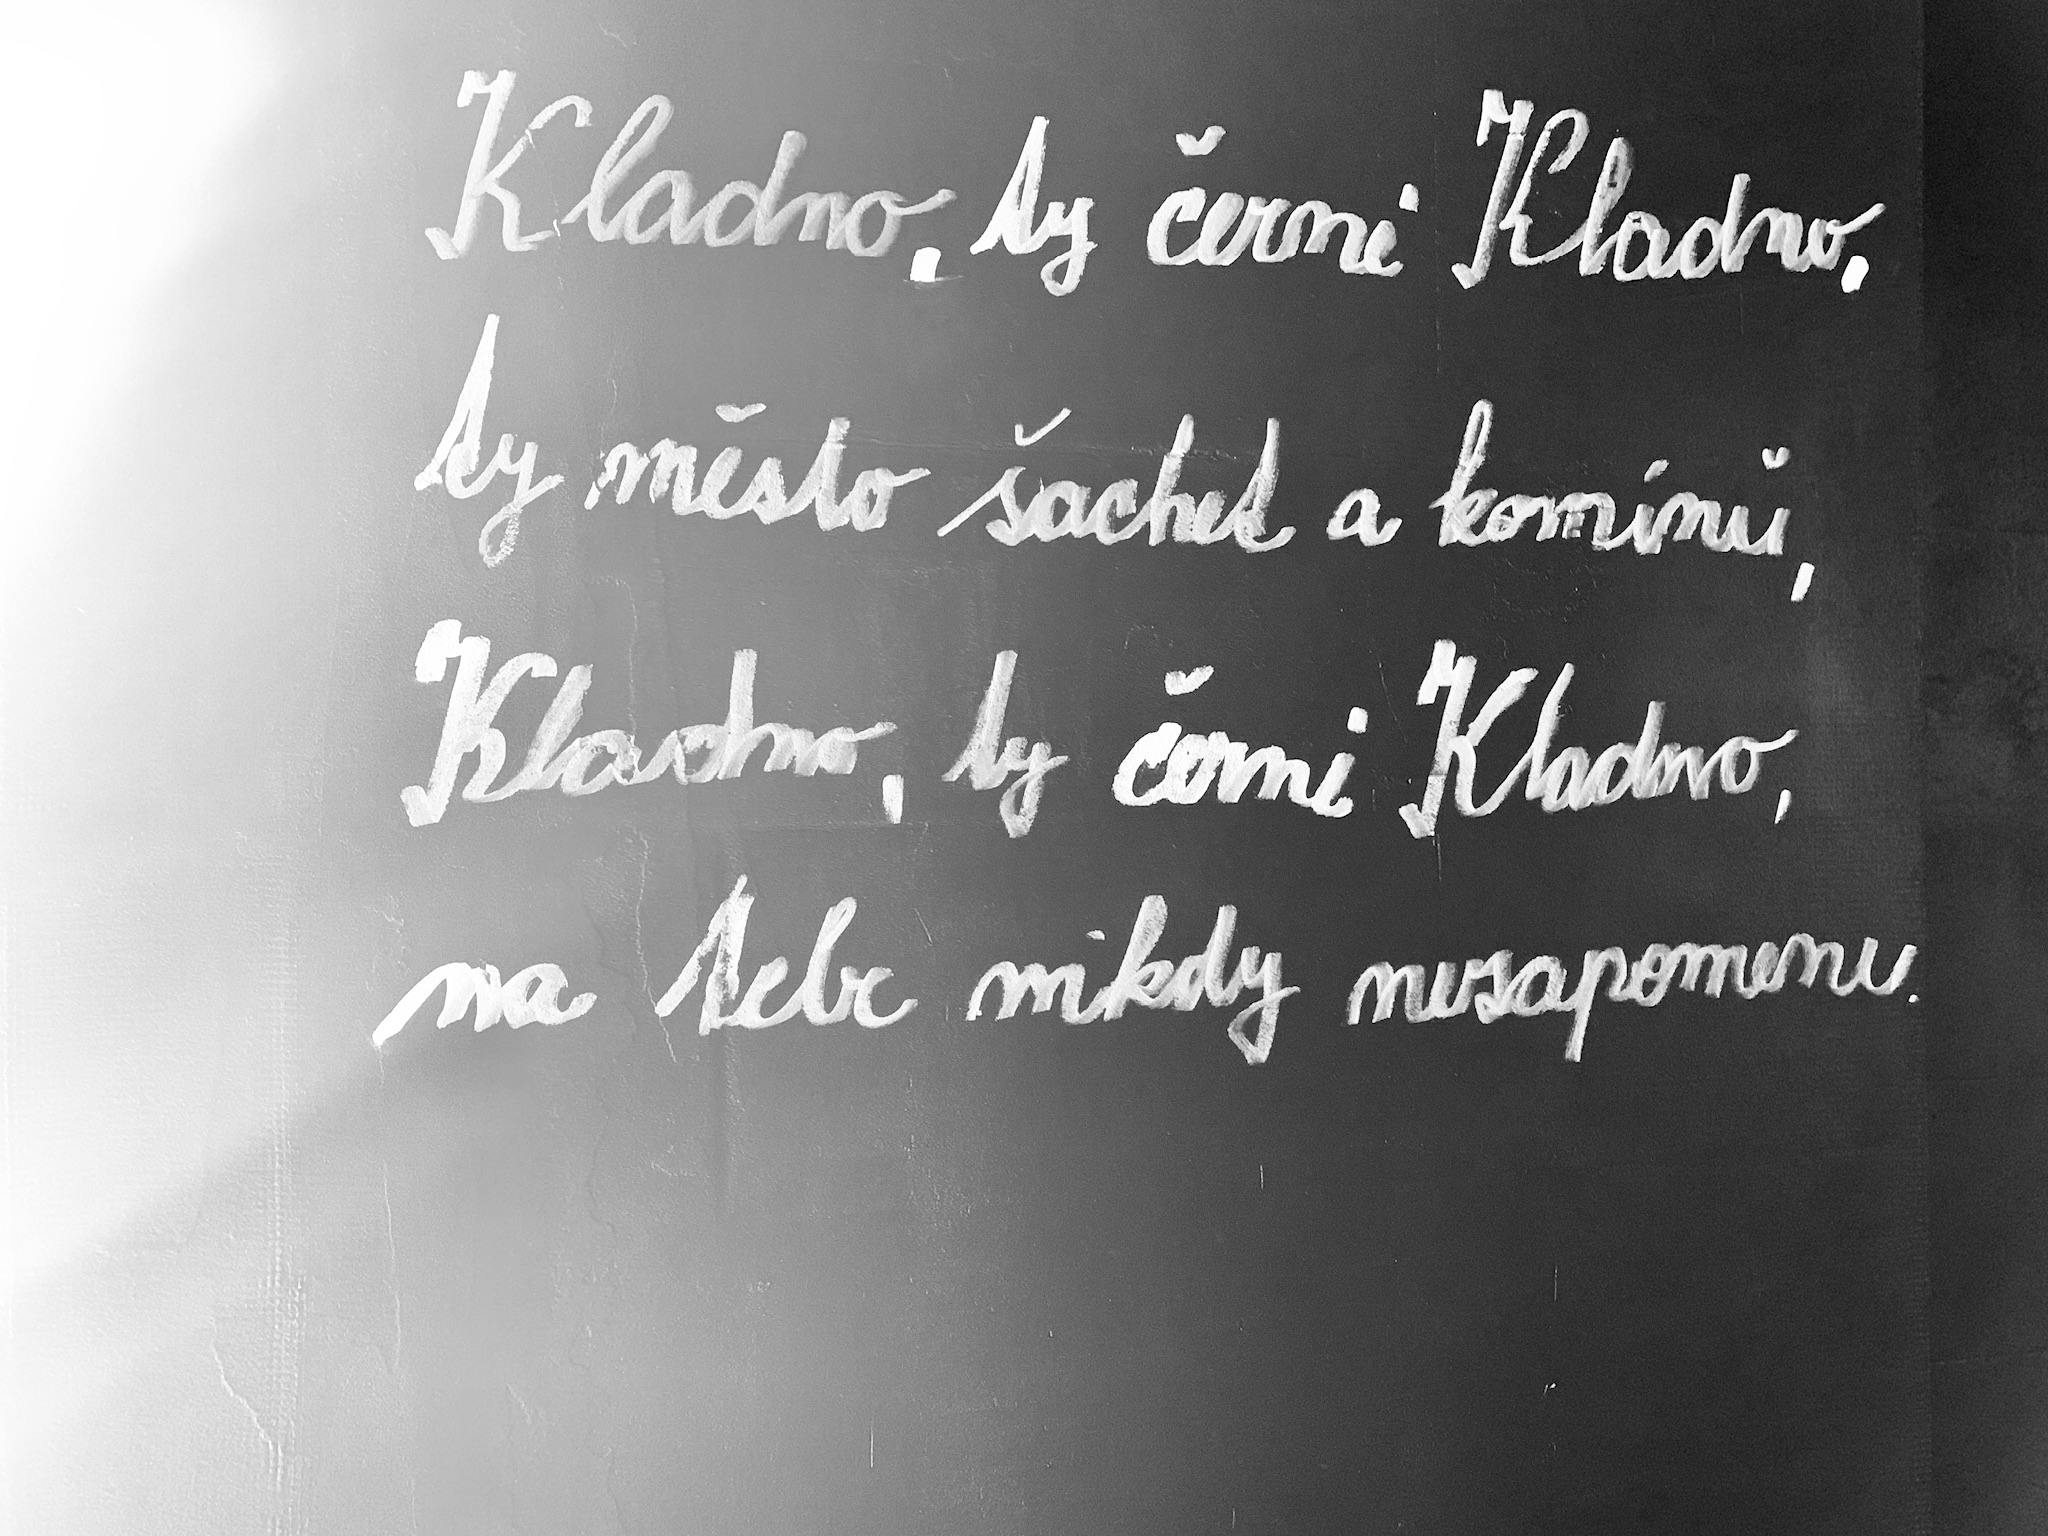 Kladno, ty černi Kladno,
ty město šachet a komínů,
Kladno, ty černi Kladno,
na tebe nikdy nezapomenu.